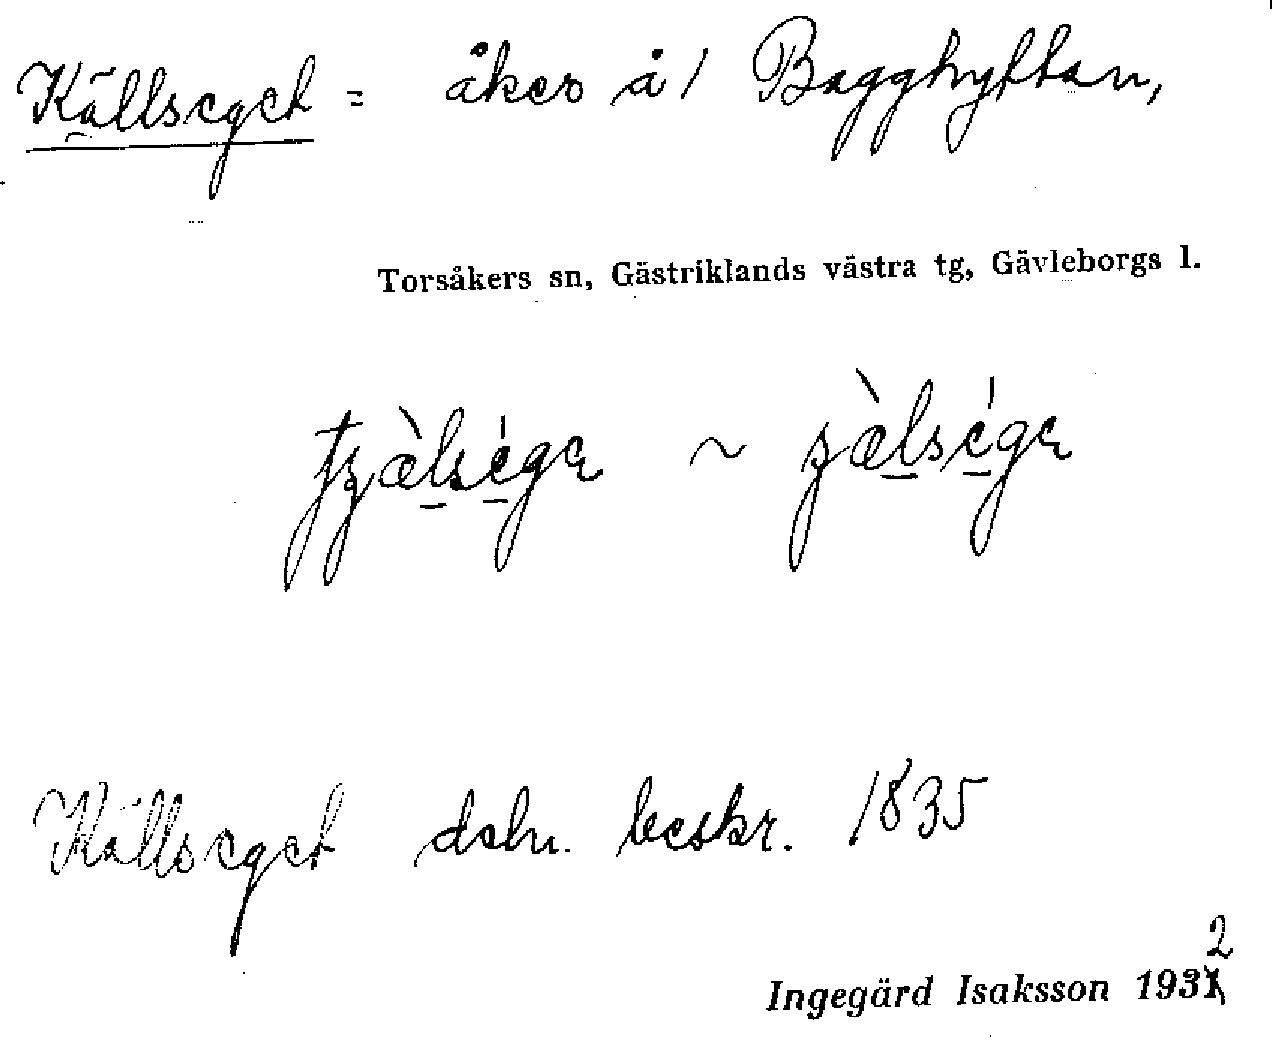 Källseget = åker å / Bagghyttan,
Torsåkers sn, Gästriklands västra tg, Gävleborgs l.
~
Källseget deln. beskr. 1835
2
Ingegärd Isaksson 1931